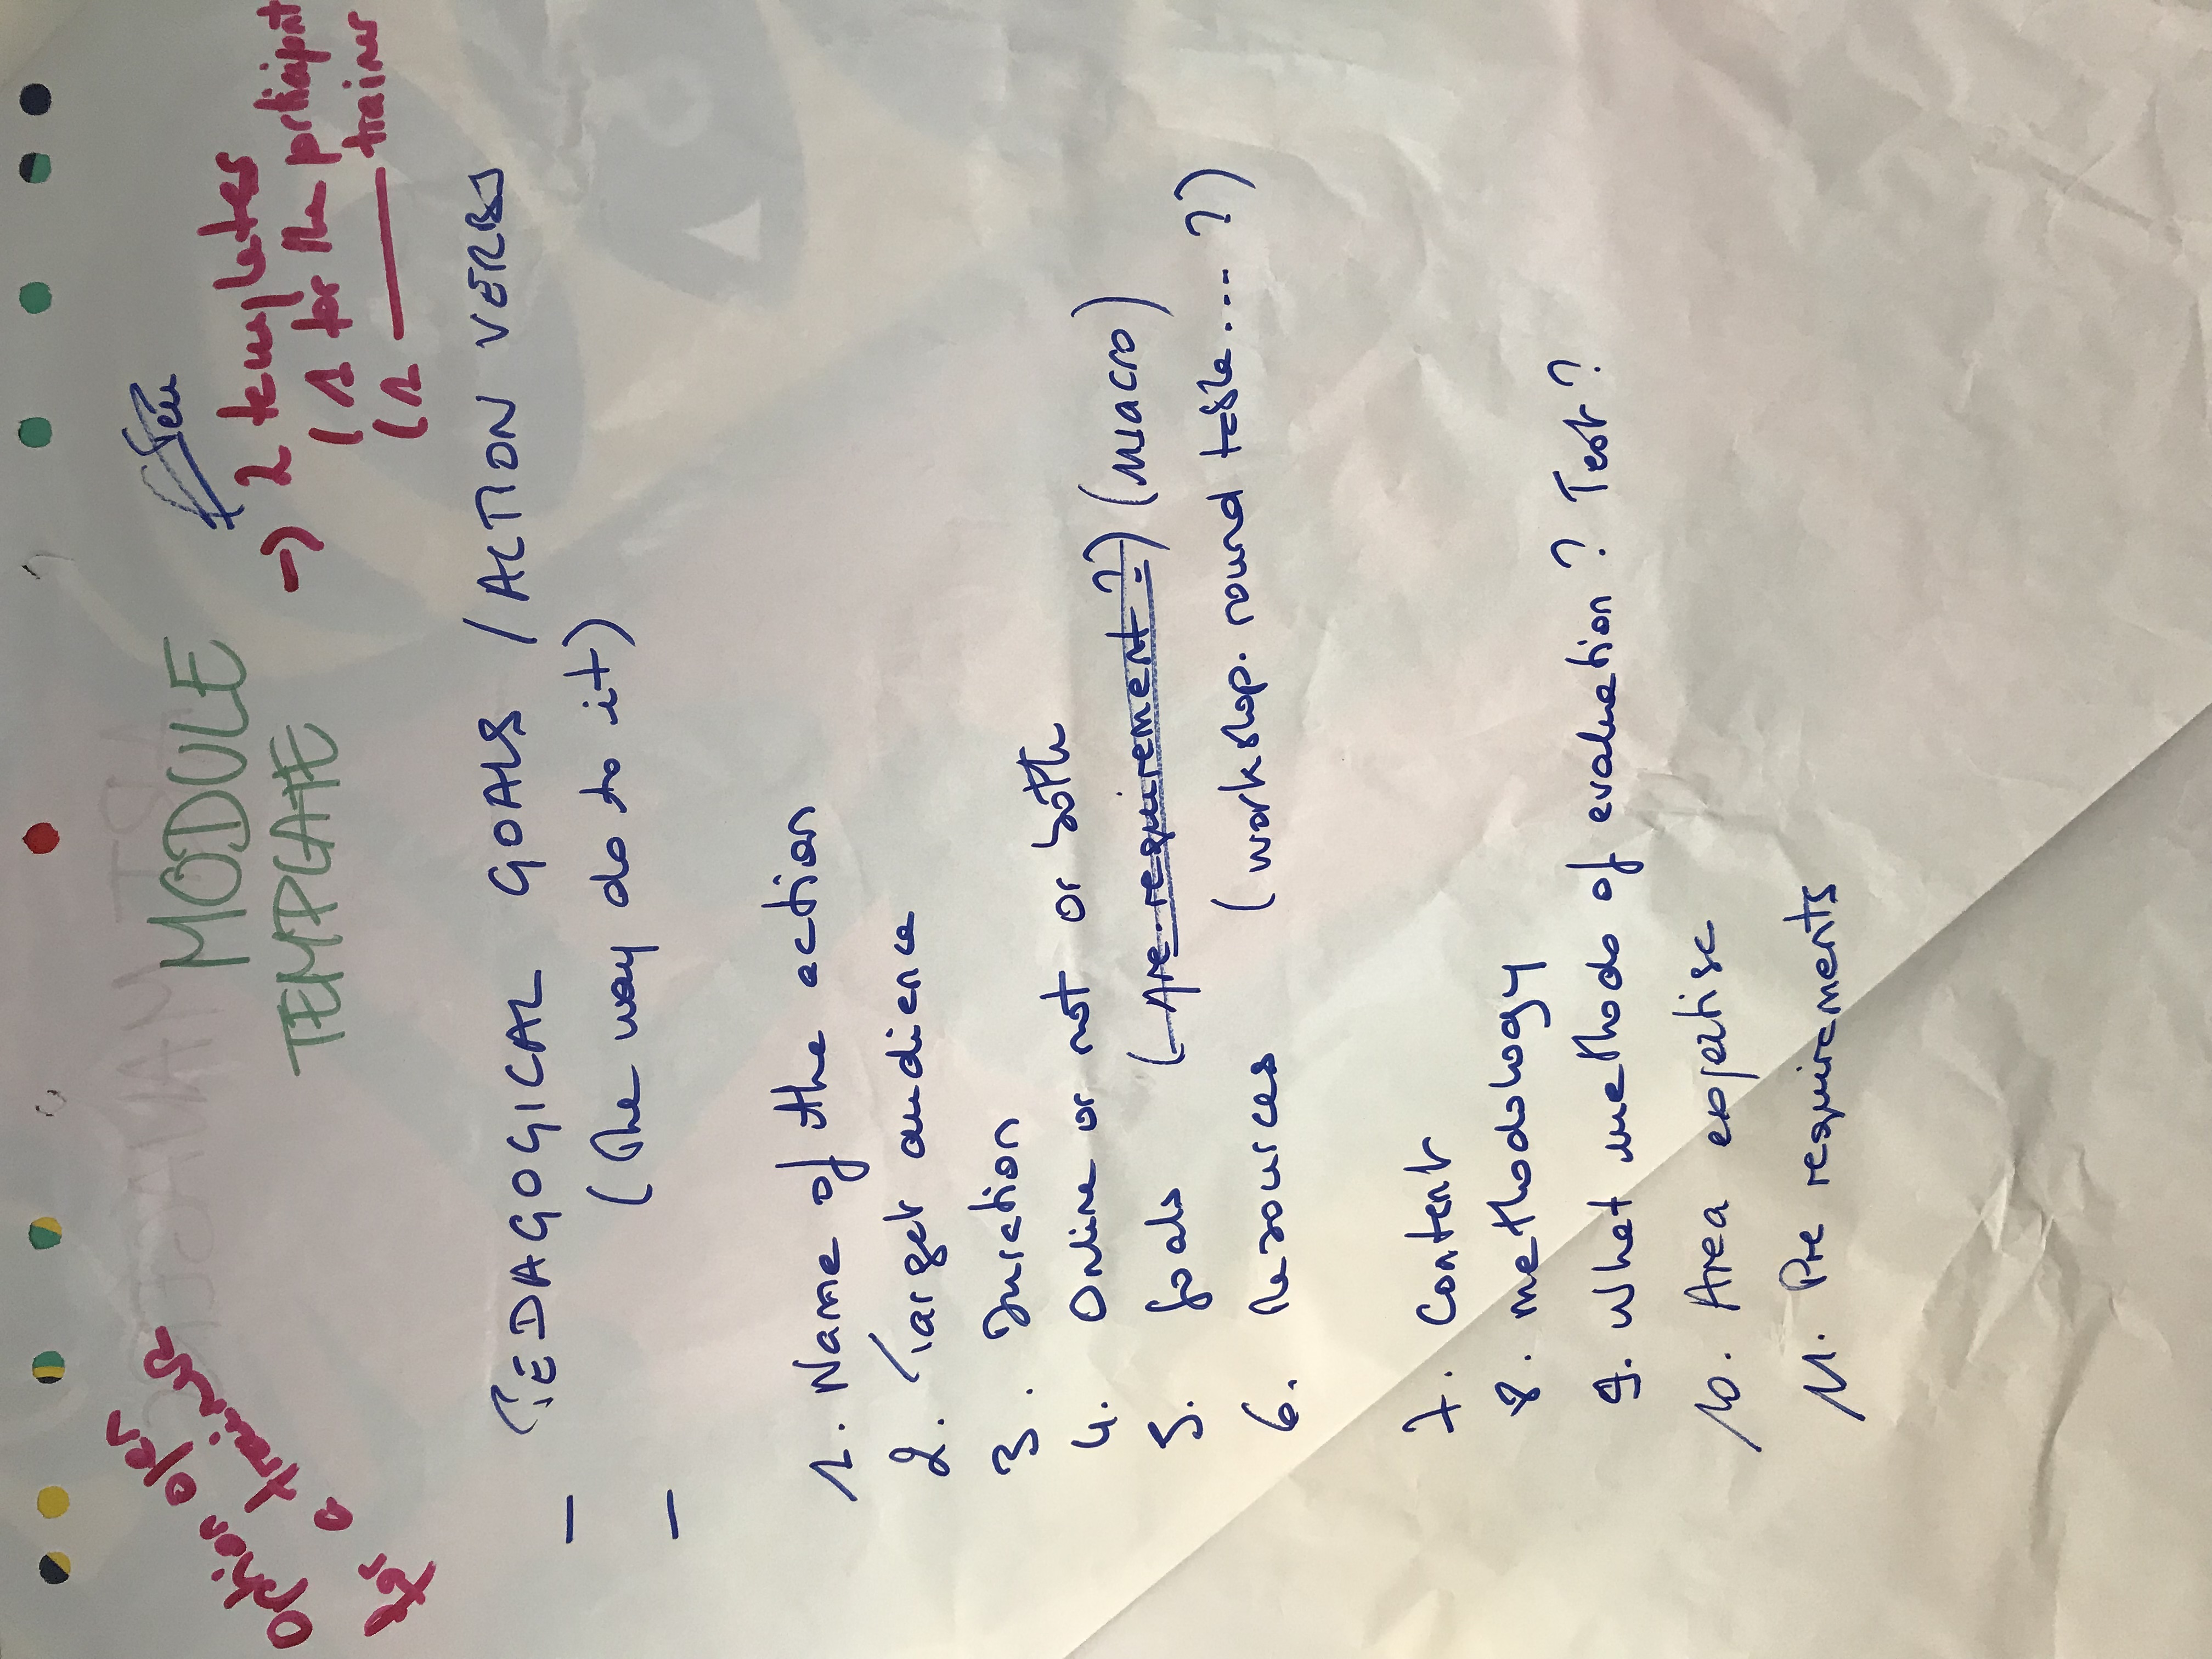 MODULE
TEMPLATE
→ 2 templates
(1 for the participant
(1 — trainer
option oper
to a trainer
- PEDAGOGICAL GOALS / ACTION VERBS
- (The way do to it)
1. Name of the action
2. Target audience
3. Duration
4. Online or not or both
5. Goals (Pre. requirement ?) (macro)
6. Resources (workshop. round table.... ?)
7. Content
8. methodology
9. What methods of evaluation ? Test ?
10. Area expertise
11. Pre requirements